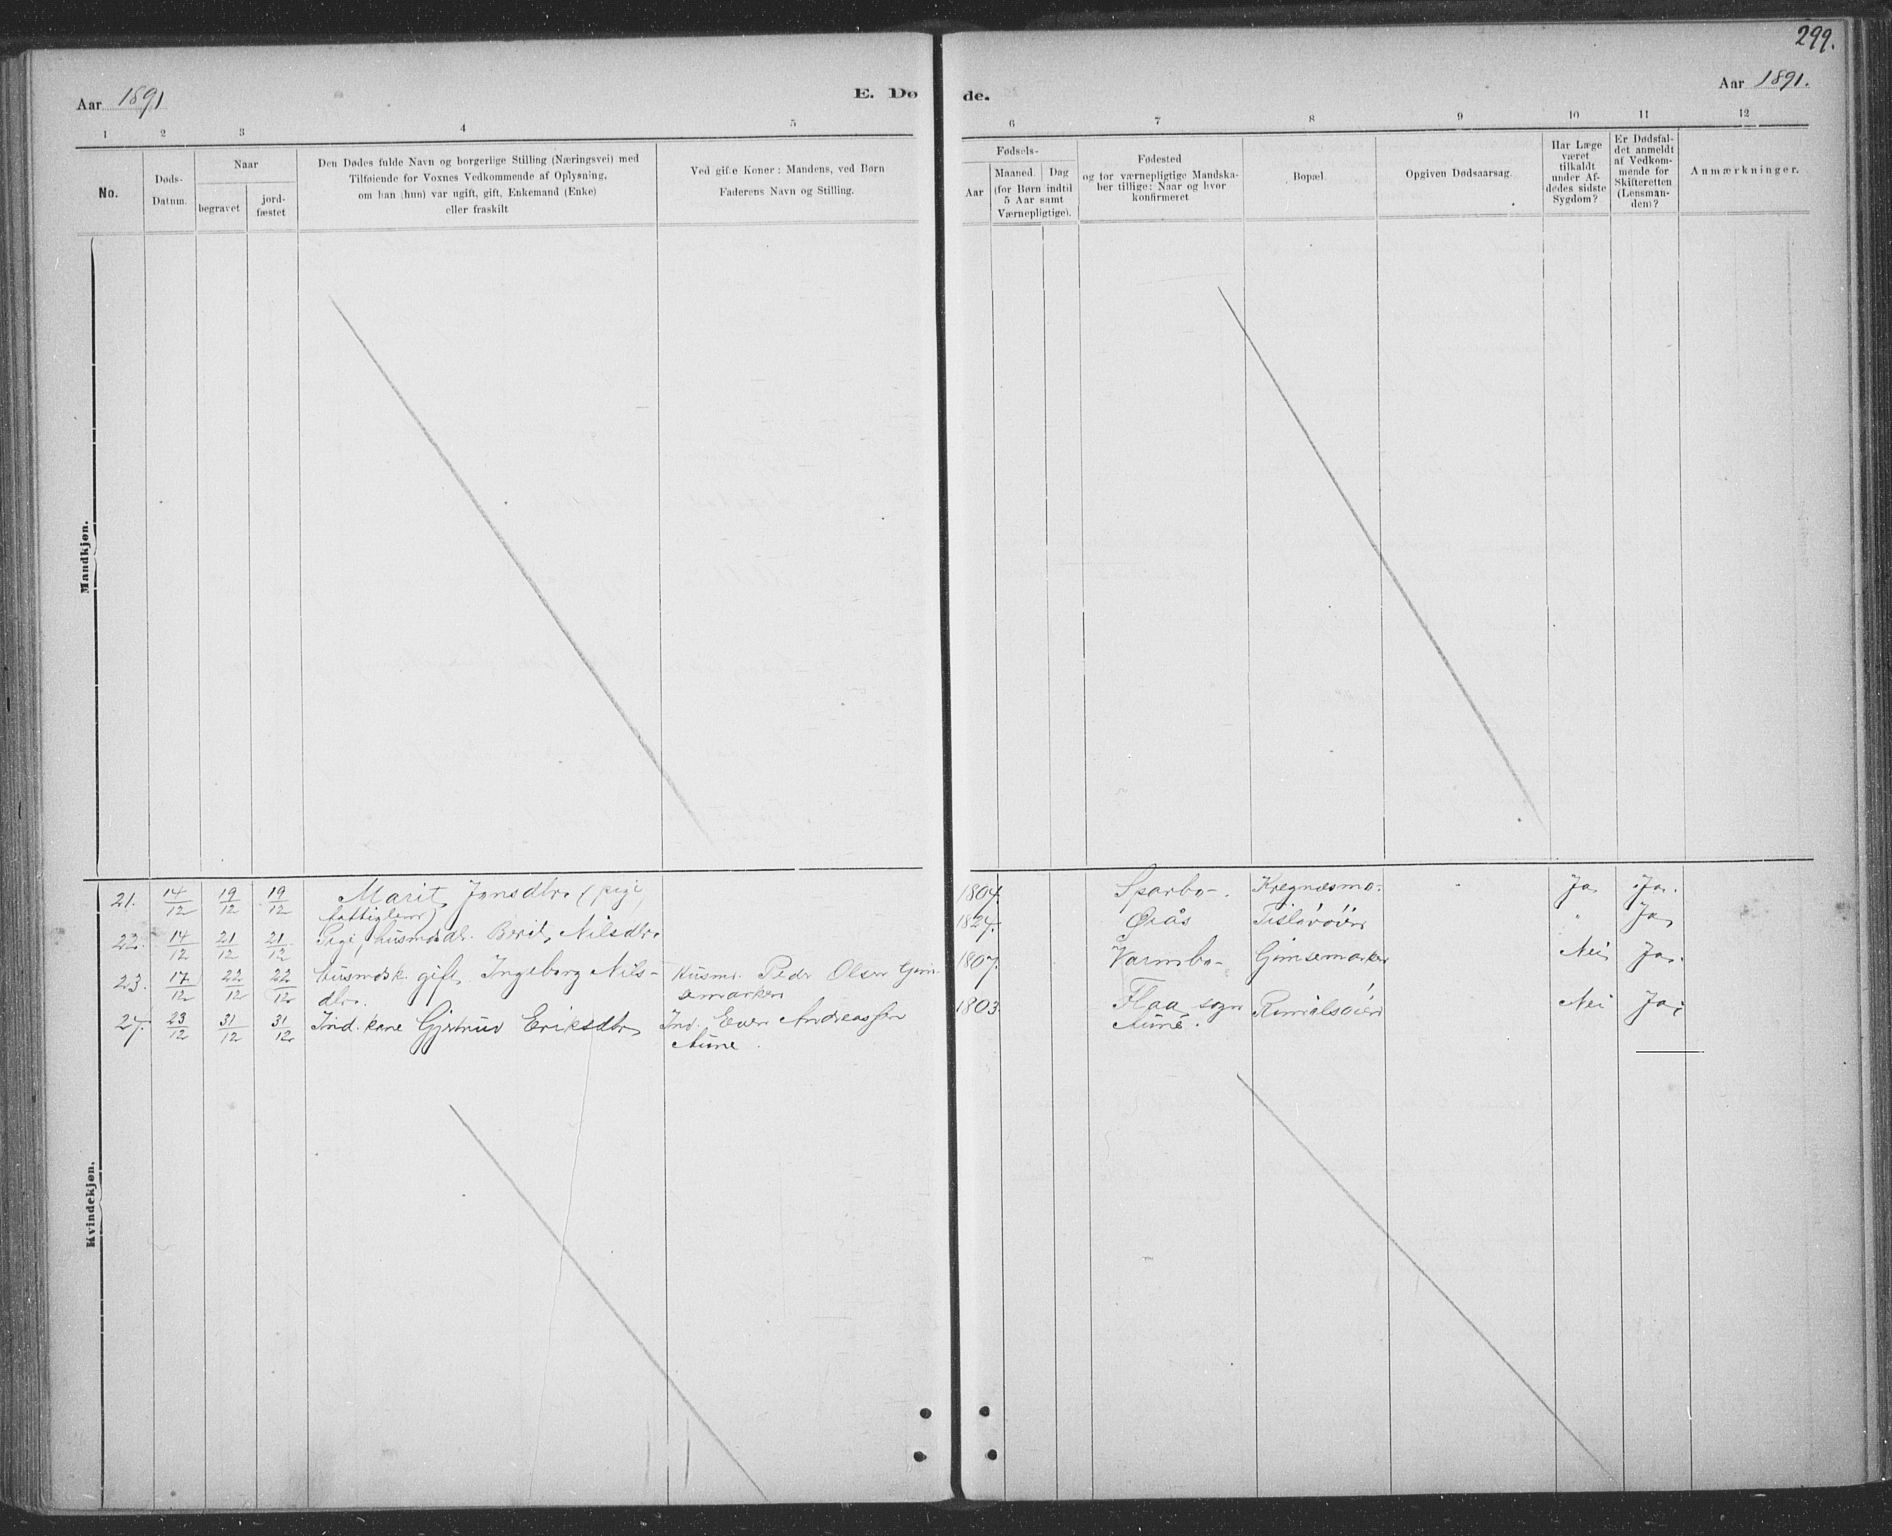 299.
Aar 1891
E. Dø
de.
Aar 1891.
1 2 3 4 5
6 7 8 9 10 11 12
No.
Døds-
Datum.
Naar
begravet
jord-
fæstet
Den Dødes fulde Navn og borgerlige Stilling (Næringsvei) med
Tilføiende for Voxnes Vedkommende af Oplysning,
om han (hun) var ugift, gift, Enkemand (Enke)
eller fraskilt
Ved gifte Koner: Mandens, ved Børn
Faderens Navn og Stilling.
Fødsels-
Aar
Maaned.
Dag
(for Børn indtil
5 Aar samt
Værnepligtige).
Fødested
og for værnepligtige Mandska-
ber tillige: Naar og hvor
konfirmeret
Bopæl.
Opgiven Dødsaarsag.
Har Læge
været
tilkaldt
under Af-
dødes sidste
Sygdom?
Er Dødsfal-
det anmeldt
af Vedkom-
mende for
Skifteretten
(Lensman-
den)?
Anmærkninger.
Mandkjøn.
Kvindekjøn.
21. 14/12 19/12 19/12 Marit Jonsdtr. (pige, 1807. Sparbo. Kregnæsmo. Ja Ja.
fattiglem)
22. 14/12 21/12 21/12 Pige, husmdsdr. Berit Nilsdtr. 1824. Ørås Tisløvøien " Ja
23. 17/12 22/12 22/12 Husmdsk. gift. Ingeborg Nils- Husm. Peder Olsen Gim- 1807. Varmbo- Gimsemarken Nei Ja.
dtr. semarken
24. 23/12 31/12 31/12 Ind. kone Gjertrud Eriksdtr. Ind. Even Andreassen 1803. Flaa sogn Rimålsøien Nei Ja
Aune. Aune.